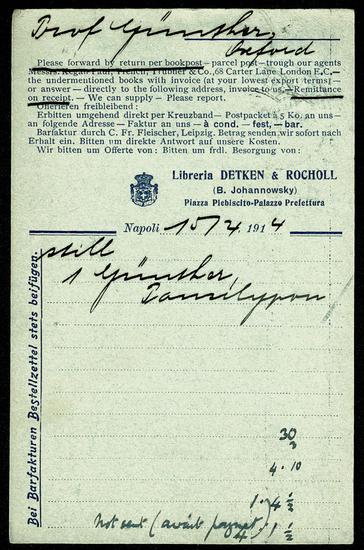 Prof Günther,
Oxford
Please forward by return per bookpost — parcel post — trough our agents
Messrs. Kegan Paul, Trench, Trübner & Co., 68 Carter Lane London E. C.,—
the undermentioned books with invoice (at your lowest export terms) —
or answer — directly to the following address, invoice to us. — Remittance
on receipt. — We can supply — Please report.
Offerieren freibleibend:
Erbitten umgehend direkt per Kreuzband — Postpacket à 5 Ko. an uns —
an folgende Adresse — Faktur an uns — à cond. — fest, — bar.
Barfaktur durch C. Fr. Fleischer, Leipzig. Betrag senden wir sofort nach
Erhalt ein. Bitten um direkte Antwort auf unsere Kosten.
Wir bitten um Offerte von: Bitten um frdl. Besorgung von:
Libreria DETKEN & ROCHOLL
(B. Johannowsky)
Piazza Plebiscito-Palazzo Prefettura
Napoli 15/4. 1914
still
1 Günther,
Pausilypon
Bei Barfakturen Bestellzettel stets beifügen.
30
4.10
1.4 1/2
Not sent (await paymet